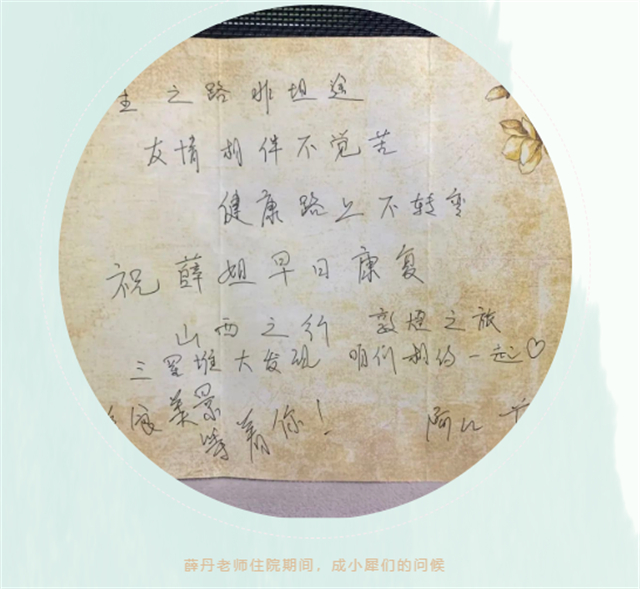 生之路非坦途
友情相伴不觉苦
健康路上不转弯
祝薛姐早日康复
山西之行 敦煌之旅
三星堆大发现 咱们相约一起♡
美景
等着你!
阿
薛丹老师住院期间，成小犀们的问候